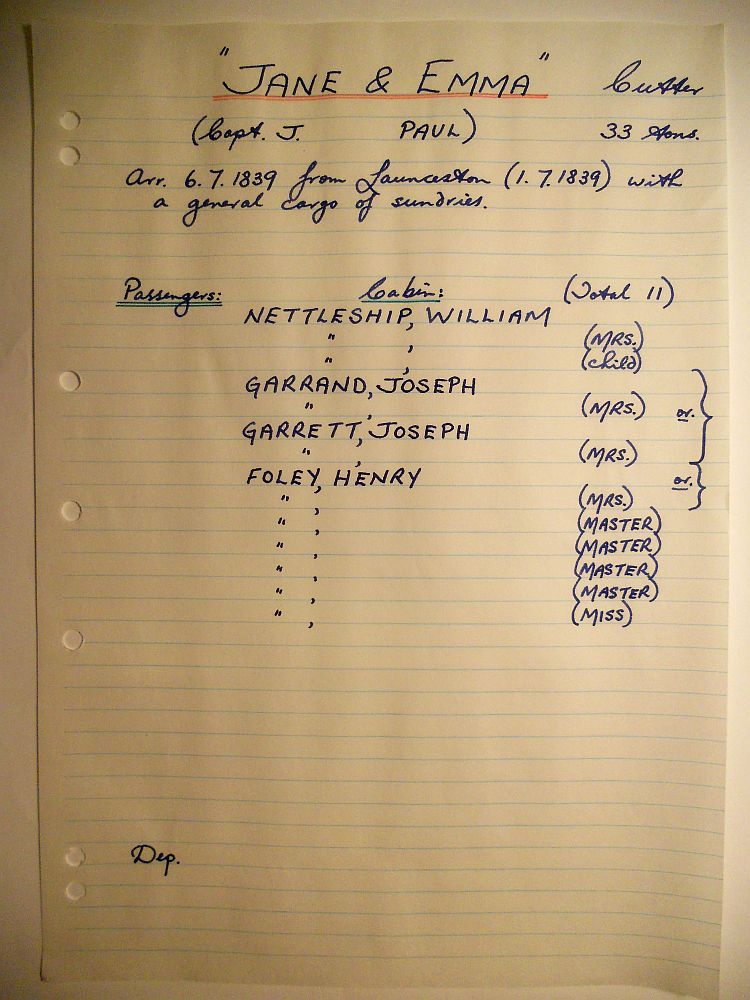 "JANE & EMMA" Cutter
(Capt. J. PAUL) 33 tons.
Arr. 6.7.1839 from Launceston (1.7.1839) with
a general cargo of sundries.
Passengers: Cabin: (Total 11)
NETTLESHIP, WILLIAM
" , (MRS.)
" , (child)
GARRAND, JOSEPH
" , (MRS.) or.
GARRETT, JOSEPH
" , (MRS.)
FOLEY, HENRY or.
" , (MRS.)
" , (MASTER)
" , (MASTER)
" , (MASTER)
" , (MASTER)
" , (MISS)
Dep.